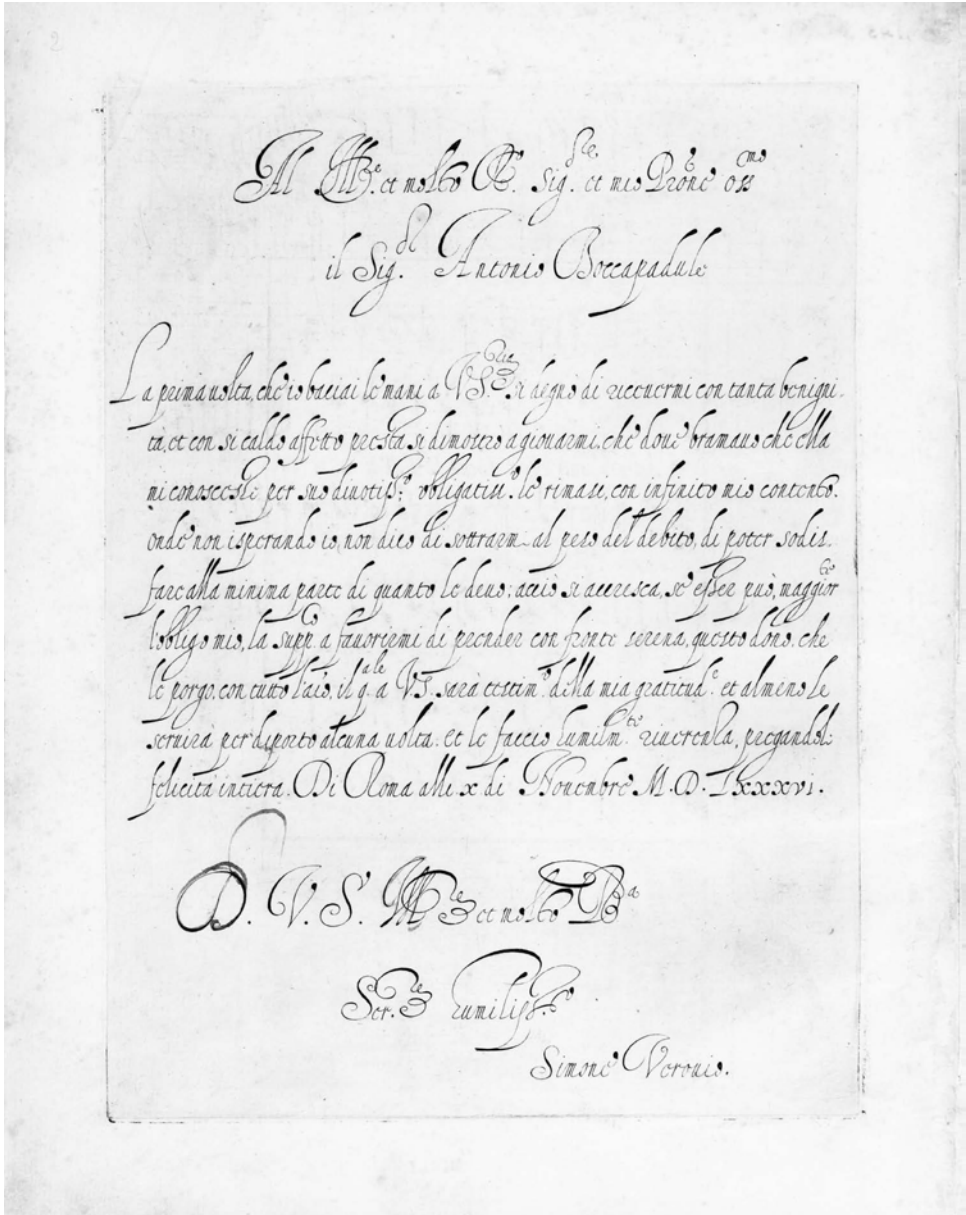 Al Ill.re et molto R.do Sig.re et mio Pron̄e oss.mo
il Sig.r Antonio Boccapadule
La prima uolta, che io baciai le mani a V.S. Ill.re si degnò di riceuermi con tanta benigni-
tà, et con si caldo affetto presta si dimostrò a giouarmi, che doue bramauo che ella
mi conoscesse per suo diuotiss.o obligatiss.o le rimasi, con infinito mio contento.
onde non isperando io, non dico di sottrarmi al peso del debito, di poter sodis-
fare alla minima parte di quanto le deuo; accio si accresca, se esser può, maggior.te
l'obligo mio, la supp.co a fauorirmi di prender con fronte serena, questo dono, che
le porgo, con tutto l'aīo, il q.ale a V.S. sarà testim.o della mia gratitud.e et almeno le
seruirà per diporto alcuna uolta. et le faccio humilm.te riuerenza, pregandole
felicità intiera. Di Roma alli x di Nouembre M.D.LXXXVI.
D. V. S. Ill.re et molto R.da
Ser.re humiliss.o
Simone Verouio.
2